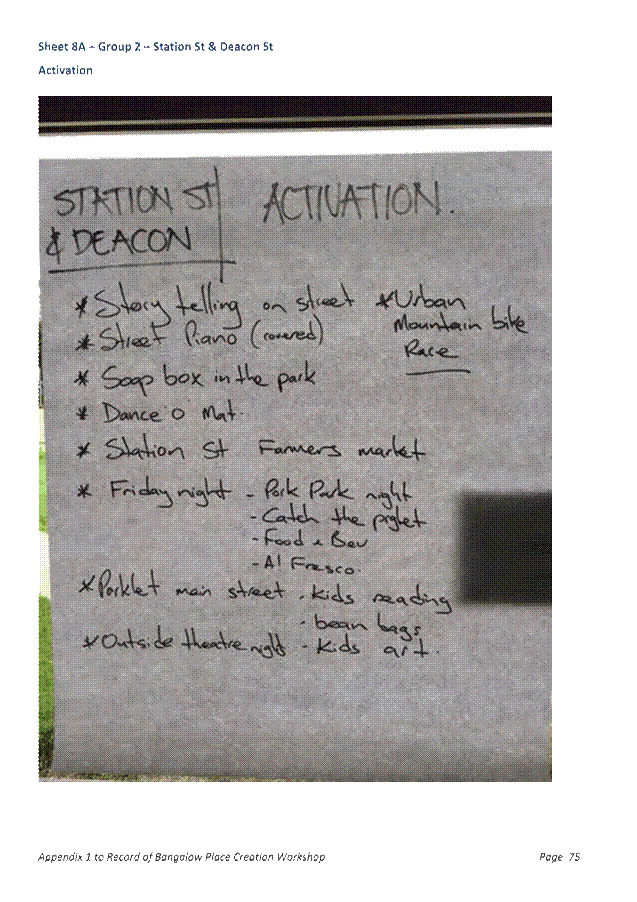 Sheet 8A – Group 2 – Station St & Deacon St
Activation
STATION ST ACTIVATION.
& DEACON
* Story telling on street
* Street Piano (covered)
* Soap box in the park
* Dance o Mat.
* Station St Farmers market
* Friday night - Pork Park night
- Catch the piglet
- Food & Bev
- Al Fresco.
* Porklet main street - Kids reading
- bean bags
* Outside theatre night - Kids art.
* Urban
Mountain bike
Race
Appendix 1 to Record of Bangalow Place Creation Workshop Page 75